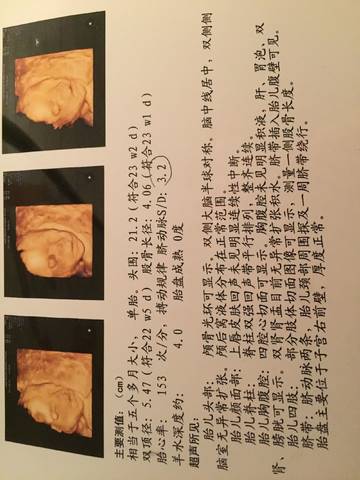 主要测值：(cm)
相当于五个多月大小， 单胎。头围：21.2（符合23 w2 d）
双顶径：5.47（符合22 w5 d） 股骨长径：4.06（符合23 w1 d）
胎心率： 153 次/分，搏动规律 脐动脉S/D：3.2
羊水深度约： 4.0 胎盘成熟 0度
超声所见：
胎儿头部： 颅骨光环可显示。双侧大脑半球对称。脑中线居中，双侧侧
脑室无异常扩张、颅后窝液体分布在正常范围。
胎儿颜面部： 上唇皮肤回声未见明显连续性中断。
胎儿脊柱： 脊柱双强回声带平行排列，整齐连续。
胎儿胸腹腔： 四腔心切面可显示，胸腹腔未见明显积液，肝、胃泡、双
肾、膀胱可显示。 双肾肾盂目前无异常扩张积水。脐带插入胎儿腹壁可见。
胎儿四肢： 部分肢体切面图像可显示，测量一侧股骨长度。
脐带：脐动脉两条。 胎儿颈部周围探及一周脐带绕行。
胎盘主要位于子宫右前壁，厚度正常。